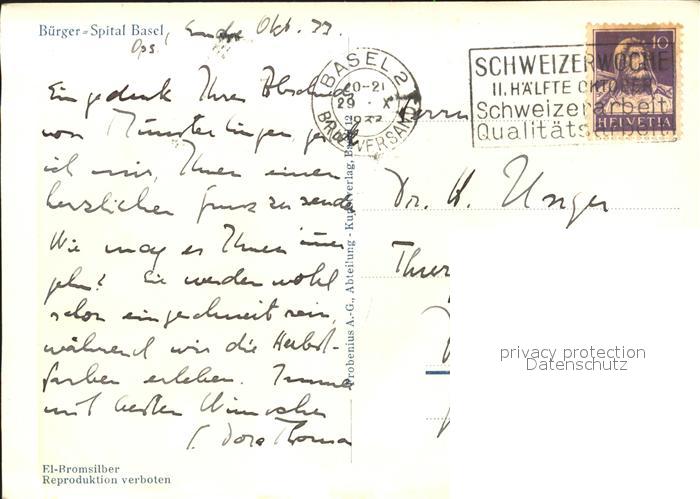 Bürger=Spital Basel,
Ende Okt. 33.
Eingedenk Ihres Abschieds
von Münsterlingen,
ich mir, Ihnen einen
herzlichen Gruss zu senden
Wie mag es Ihnen immer
gehn? Sie werden wohl
schon eingeschneit sein,
während wir die Herbst-
farben erleben. Immer
mit besten Wünschen
Dora Thoma
El-Bromsilber
Reproduktion verboten
Frobenius A.-G., Abteilung - Kunstverlag, Basel 12
BASEL 2
20-21
29. X
BRIEFVERSAND
SCHWEIZERWOCHE
II. HÄLFTE OKTOBER
Schweizerarbeit
Qualitätsarbeit
10
HELVETIA
Herrn
Dr. H. Unger
privacy protection
Datenschutz